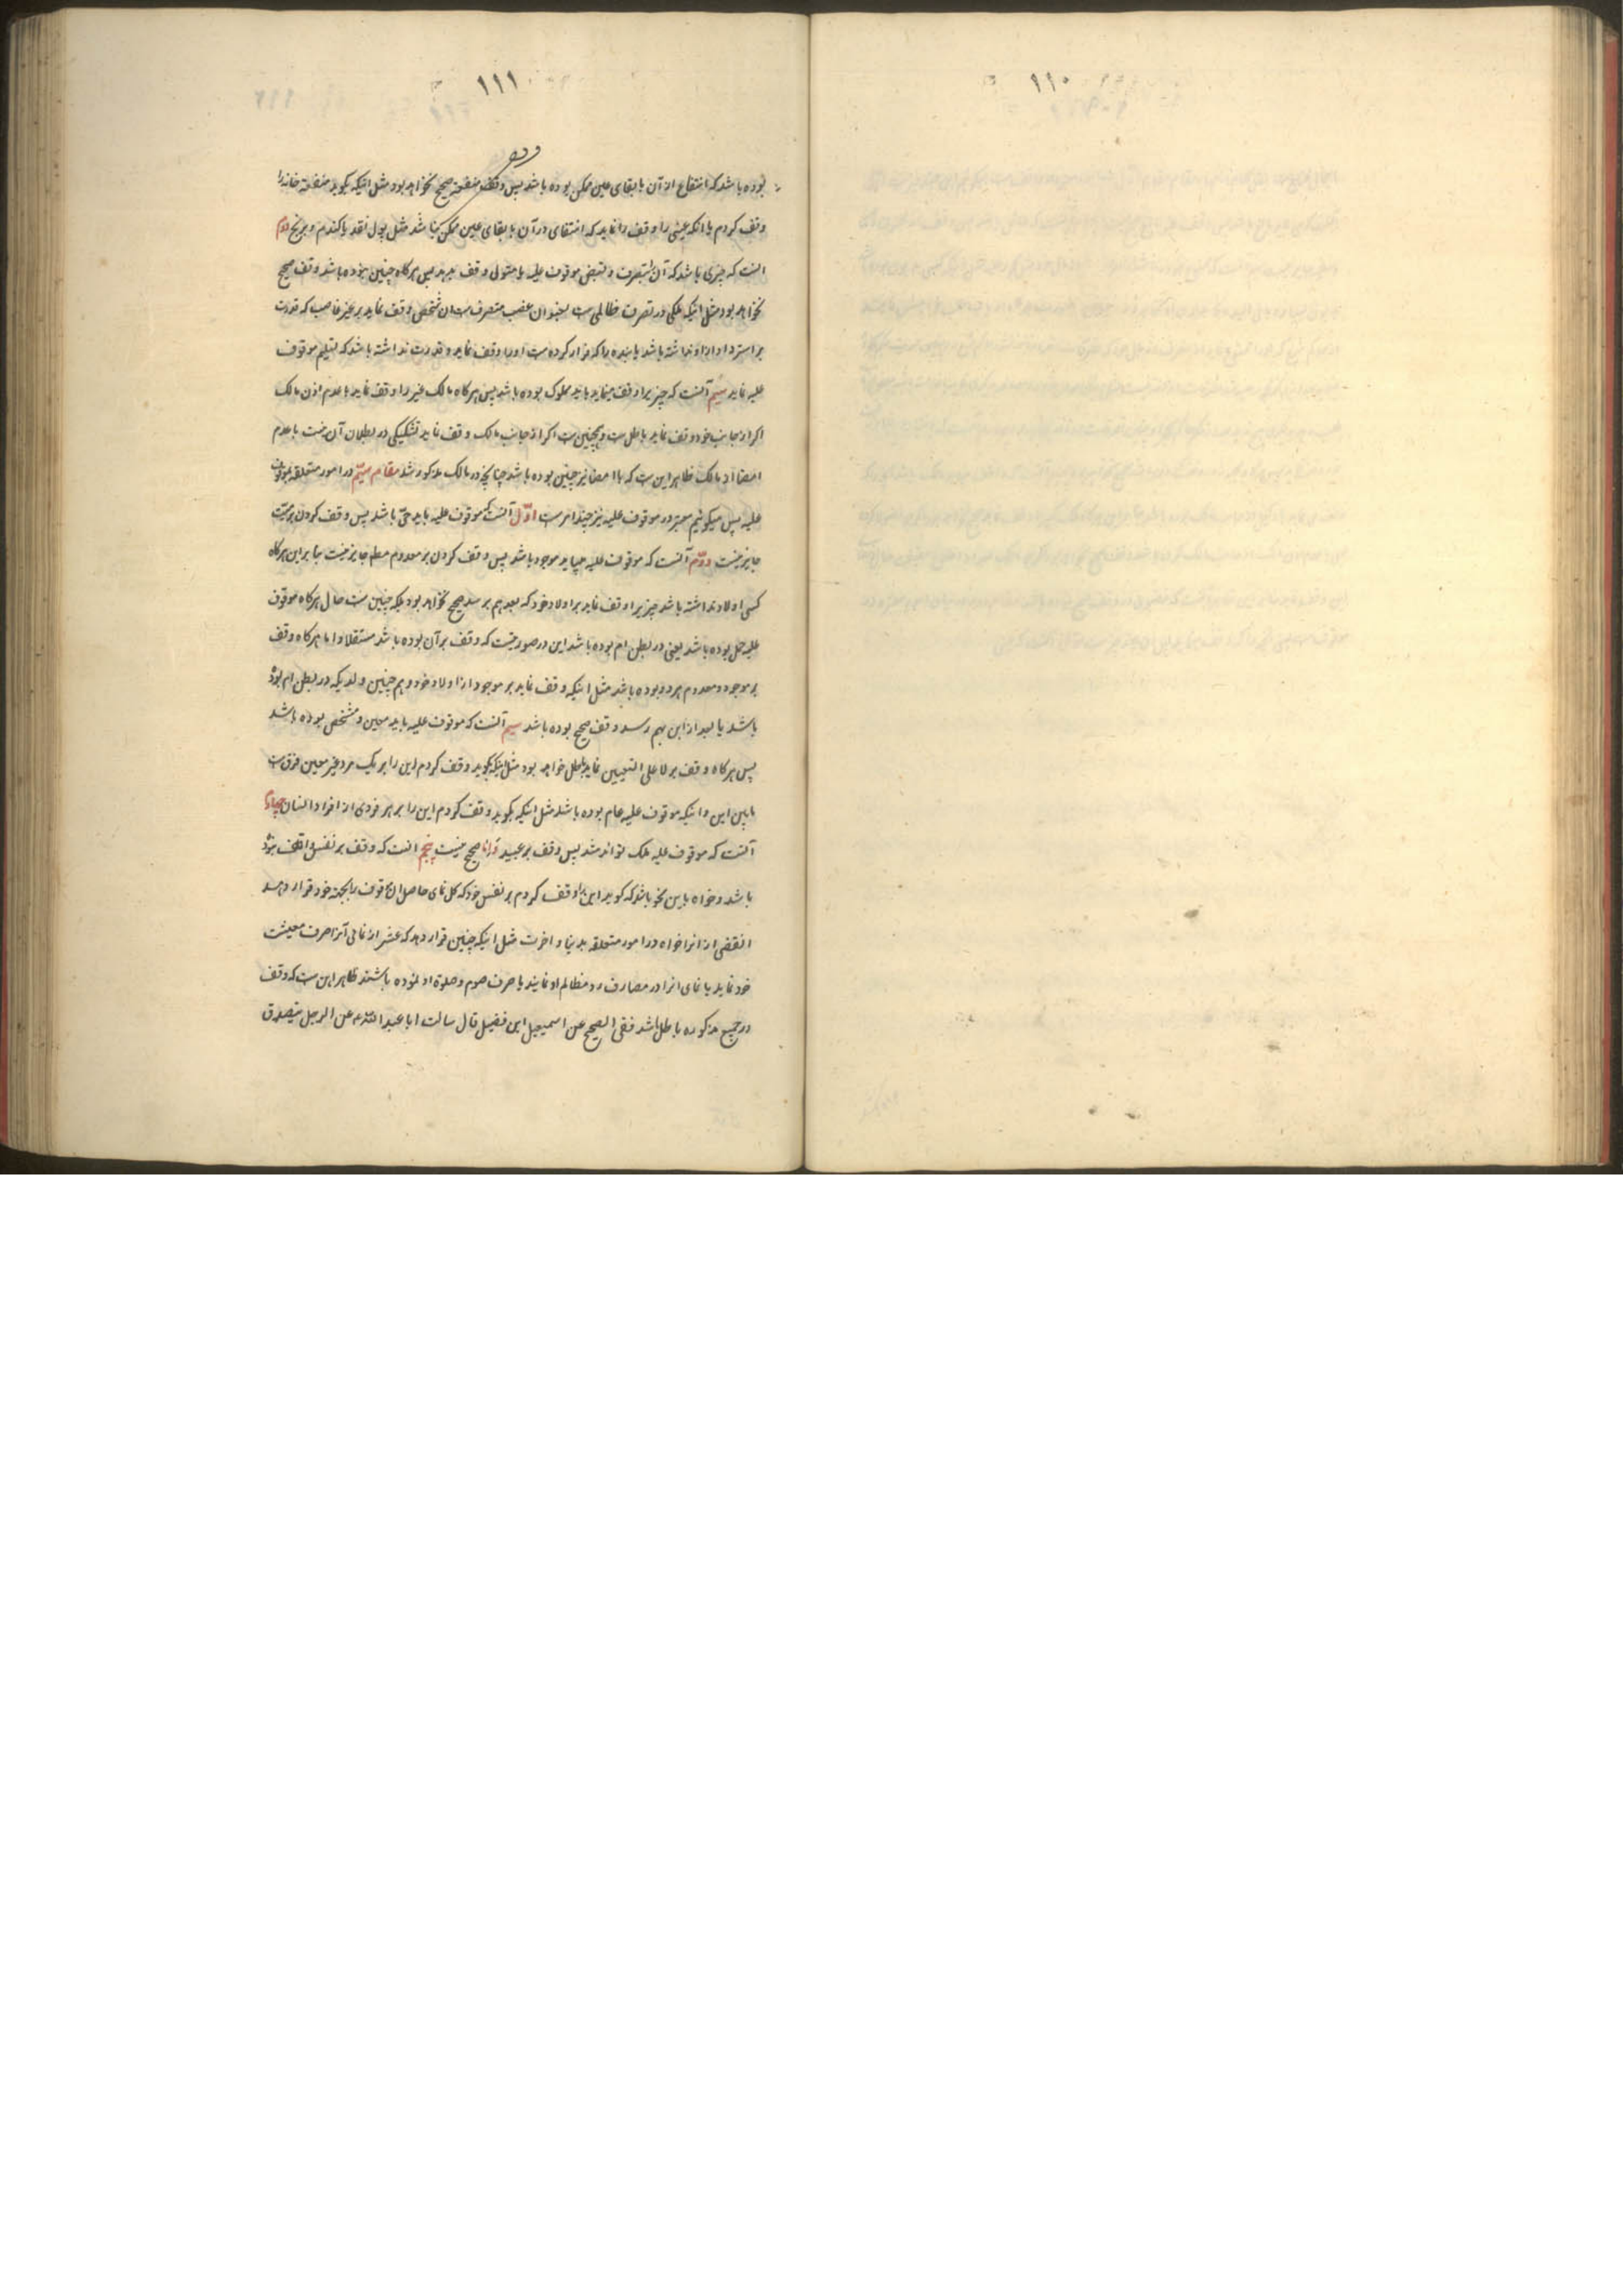 ۱۱۰
۱۱۱
بوده باشد که انتفاع از آن با بقای عین ممکن بوده باشد پس وقف منفعة صحیح نخواهد بود مثل اینکه بکوید منفعة خانه را
وقف کردم یا انکه عینی را وقف نماید که انتفاع در آن با بقای عین ممکن نباشد مثل پول نقد یا کندم و برنج دوم
انست که چیزی باشد که آن بتصرف و بقبض موقوف علیه یا متولی وقف بدهد پس هرکاه چنین نبوده باشد وقف صحیح
نخواهد بود مثل اینکه ملکی در تصرف ظالمی ست بعنوان غصب متصرف ست ان شخص وقف نماید بر غیر غاصب که قدرت
بر استرداد از او نداشته باشد یا بنده را که فرار کرده ست او را وقف نماید و قدرت نداشته باشد که تسلیم موقوف
علیه نماید سیم آنست که چیزیرا وقف مینماید باید مملوک بوده باشد پس هرکاه مالک غیر را وقف نماید با عدم اذن مالک
اکر از جانب خود وقف نماید باطل ست و همچنین ست اکر از جانب مالک وقف نماید تشکیکی در بطلان آن نیست با عدم
امضا از مالک ظاهر این ست که با امضا نیز چنین بوده باشد چنانچه در مالک مذکور شد مقام سیم در امور متعلقه بموقوف
علیه پس میکوئیم معتبر در موقوف علیه نیز چند امر ست اوّل آنست که موقوف علیه باید حیّ باشد پس وقف کردن بر میّت
جایز نیست دوّم آنست که موقوف علیه میباید موجود باشد پس وقف کردن بر معدوم مطلقا جایز نیست بنا بر این هرکاه
کسی اولاد نداشته باشد چیزیرا وقف نماید بر اولاد خود که بعد بهم برسد صحیح نخواهد بود بلکه چنین ست حال هرکاه موقوف
علیه حمل بوده باشد یعنی در بطن ام بوده باشد این در صورتیست که وقف بر آن بوده باشد مستقلا و اما هرکاه وقف
بر موجود و معدوم هر دو بوده باشد مثل اینکه وقف نماید بر موجود از اولاد خود و هم چنین ولدیکه در بطن ام بوده
باشد یا بعد از این بهم رسد وقف صحیح بوده باشد سیم آنست که موقوف علیه باید معین و مشخص بوده باشد
پس هرکاه وقف بر لا علی التعیین نماید باطل خواهد بود مثل اینکه بکوید وقف کردم این را بر یک مرد غیر معین فرق ست
مابین این و اینکه موقوف علیه عام بوده باشد مثل اینکه بکوید وقف کردم این را بر هر فردی از افراد انسان چهارم
آنست که موقوف علیه ملک تواند شد پس وقف بر عبید صحیح نیست پنجم انست که وقف بر نفس واقف نبوده
باشد و خواه باین نحو باشد که کوید این را وقف کردم بر نفس خود که کل نمای حاصل از موقوف را بجهة خود قرار دهد
از انرا خواه در امور متعلقه بدنیا و اخرت مثل اینکه چنین قرار دهد که عشر از نمای آنرا صرف معیشت
خود نماید یا نمای انرا در مصارف رد مظالم او نمایند یا صرف صوم و صلوة او نموده باشند ظاهر این ست که وقف
در جمیع مذکوره باطل باشد ففی الصحیح عن اسمعیل ابن فضیل قال سالت ابا عبد الله عن الرجل یتصدق